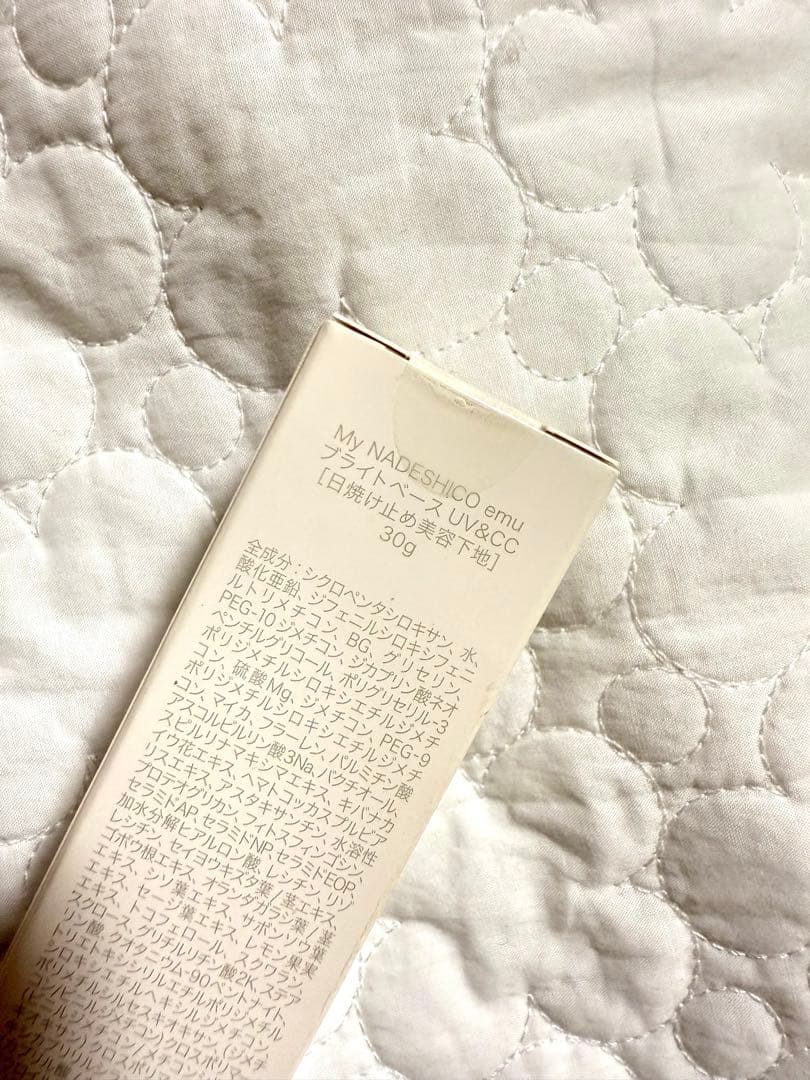 My NADESHICO emu
ブライトベース UV&CC
[日焼け止め美容下地]
30g
全成分：シクロペンタシロキサン、水、
酸化亜鉛、ジフェニルシロキシフェニ
ルトリメチコン、BG、グリセリン、
PEG-10ジメチコン、ジカプリン酸ネオ
ペンチルグリコール、ポリグリセリル-3
ポリジメチルシロキシエチルジメチ
コン、硫酸Mg、ジメチコン、PEG-9
ポリジメチルシロキシエチルジメチ
コン、マイカ、フラーレン、パルミチン酸
アスコルビルリン酸3Na、バクチオール、
スピルリナマキシマエキス、キバナカ
イウ花エキス、ヘマトコッカスプルビア
リスエキス、アスタキサンチン、水溶性
プロテオグリカン、フィトスフィンゴシン、
セラミドAP、セラミドNP、セラミドEOP、
加水分解ヒアルロン酸、レシチン、リゾ
レシチン、セイヨウキズタ葉/茎エキス、
ゴボウ根エキス、オランダガラシ葉/茎
エキス、シソ葉エキス、サボンソウ葉
エキス、セージ葉エキス、レモン果実
エキス、トコフェロール、スクワラン、
スクロース、グリチルリチン酸2K、ステア
リン酸、クオタニウム-90ベントナイト、
トリエトキシシリルエチルポリジメチル
シロキシエチルヘキシルジメチコン、
ポリメチルシルセスキオキサン、(ジメチ
コン/ビニルジメチコン)クロスポリマー、